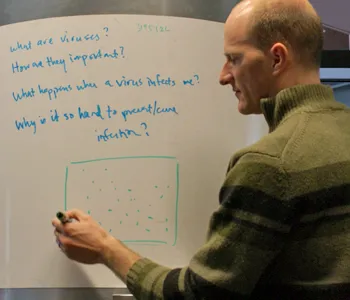 what are viruses?
How are they important?
What happens when a virus infects me?
Why is it so hard to prevent/cure
infection?